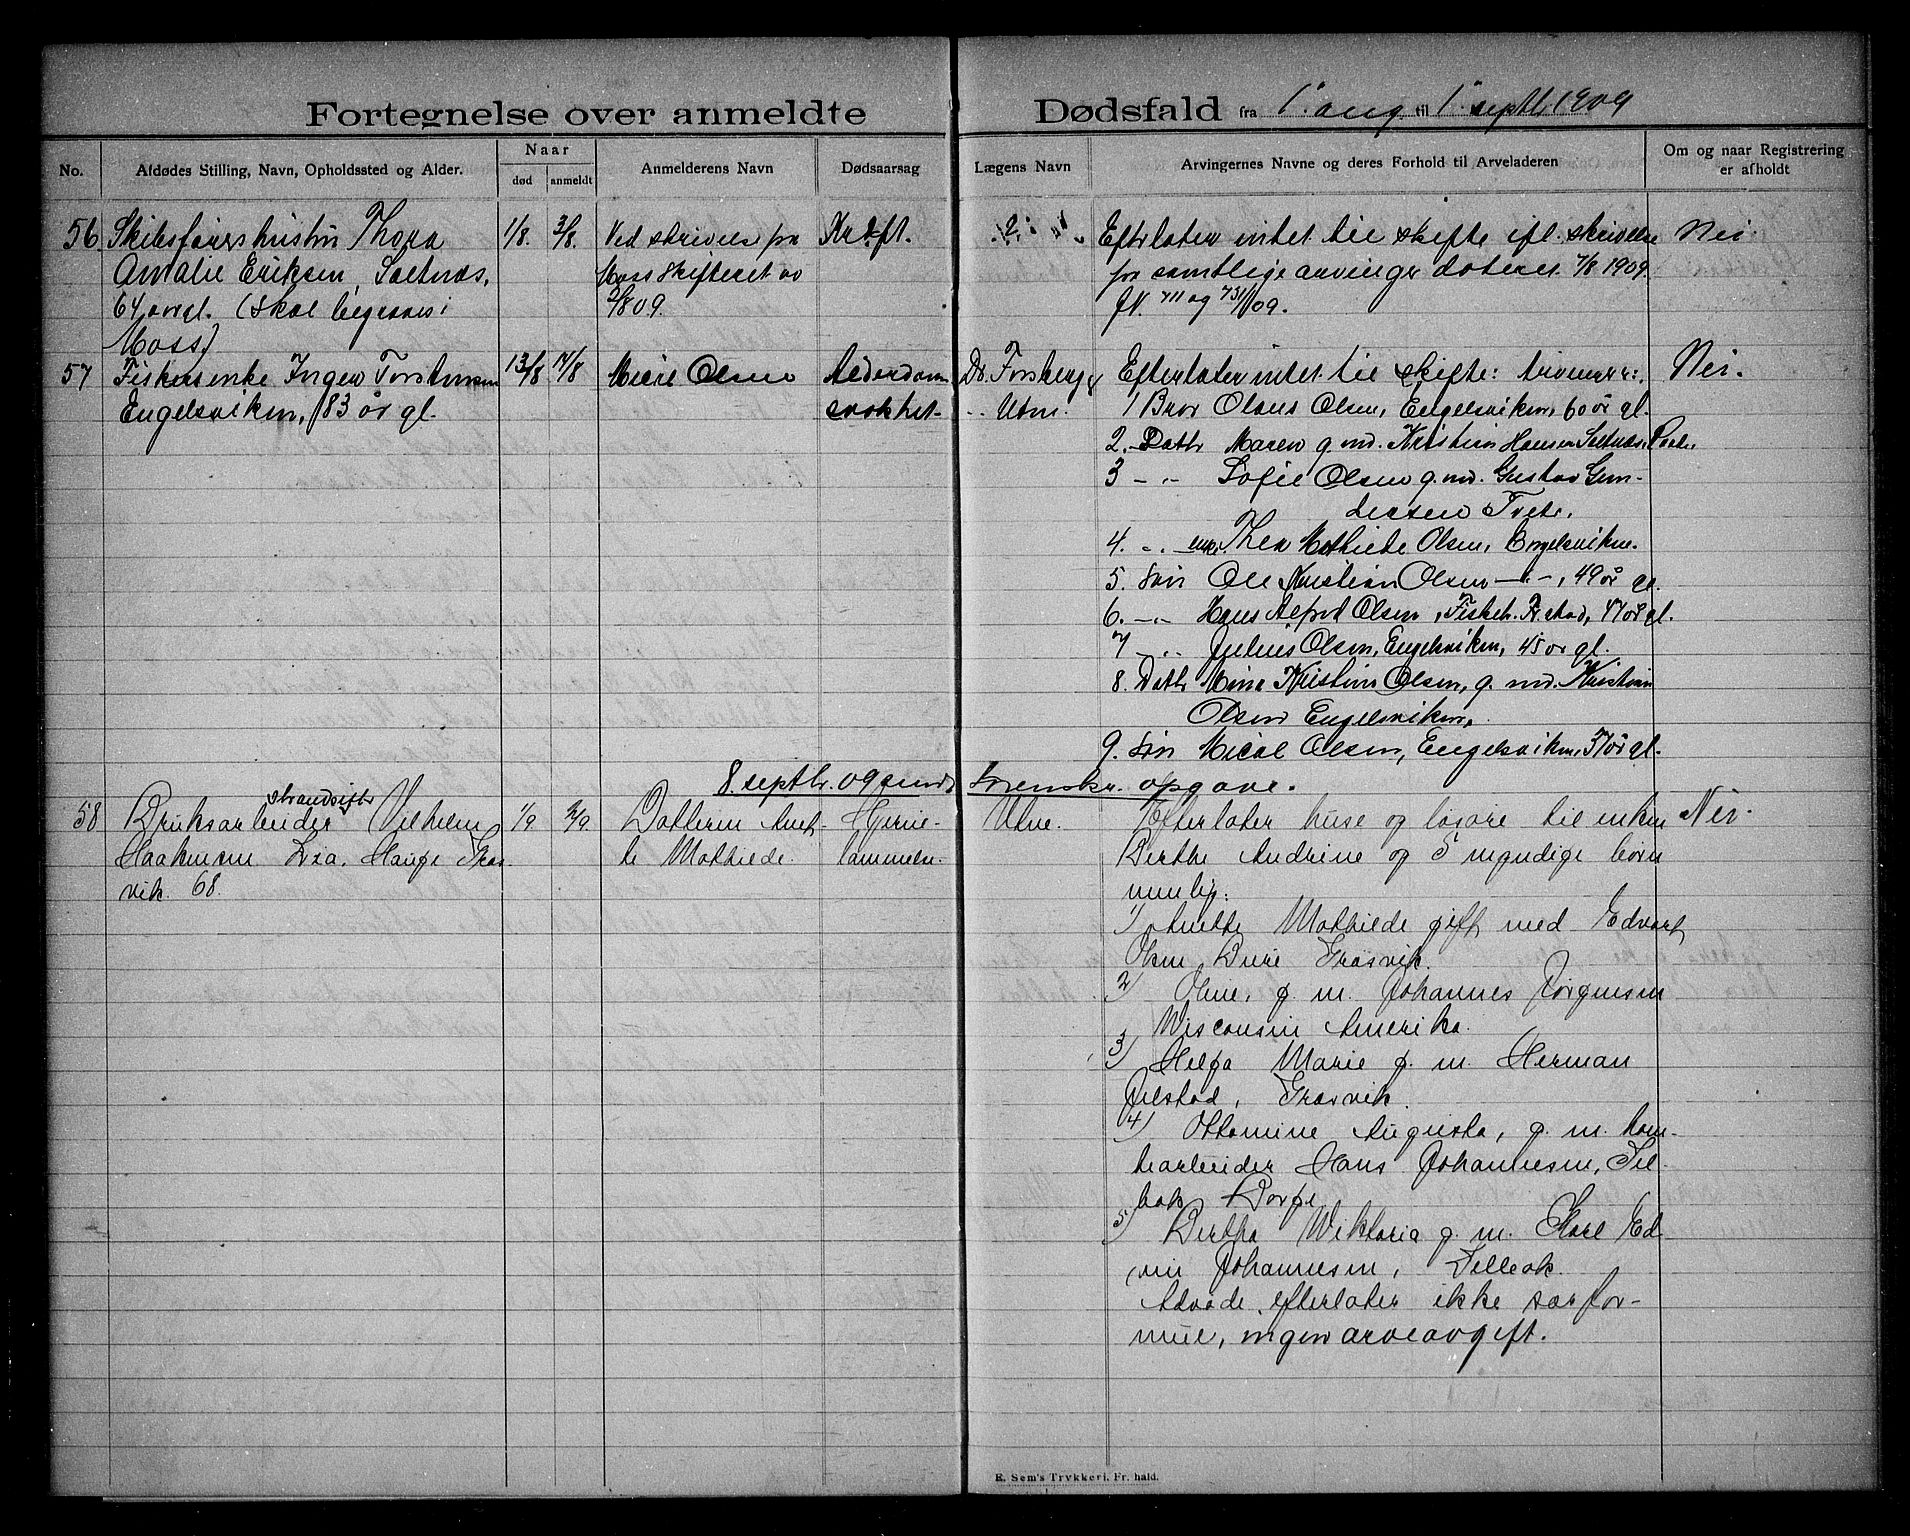 Fortegnelse over anmeldte Dødsfald fra 1. aug. til 1. septb. 1909
No.
Afdødes Stilling, Navn, Opholdssted og Alder.
Naar
død
anmeldt
Anmelderens Navn
Dødsaarsag
Lægens Navn
Arvingernes Navne og deres Forhold til Arveladeren
Om og naar Registrering
er afholdt
56
Skibsførershustru Thora
Amalie Eriksen, Saltnæs,
64 aar gl. (skal begraves i
Moss)
1/8.
3/8.
Ved skrivelse fra
Moss skifteret av
2/8 09.
Kræft.
?
Efterlater intet til skifte ifl. skrivelse
fra samtlige arvinger dateret 7/8 1909.
JN. 711 og 731/09.
Nei.
57
Fiskerenke Inger Torstensen
Engelsviken, 83 år gl.
13/8
17/8
Micael Olsen
Alderdoms
svakhet
Dr. Forsberg
Utne.
Efterlater intet til skifte: Arvinger:
1 Bror Olaus Olsen, Engelsviken, 60 år gl.
2. Datter Maren g. md. Kristian Hansen Saltnæs,
3 - " - Sofie Olsen g. md. Gustav Gun-
dersen Træta.
4. - " - enke Thea Mathilde Olsen, Engelsviken.
5. Søn Ole Kristian Olsen - " -, 49 år gl.
6. - " - Hans Alfred Olsen, Fisker. Fr.stad, 47 år gl.
7 - " - Julius Olsen, Engelsviken, 45 år gl.
8. Datter Mina Kristine Olsen, g. md. Kristian
Olsen Engelsviken,
9. Søn Micael Olsen, Engelsviken, 37 år gl.
Nei.
8. septbr. 09 sendt lensm. opgave.
58
strandsitter
Bruksarbeider Vilhelm
Haakensen Lea, Hauge
vik. 68.
1/9
2/9.
Datteren Anet-
te Mathilde.
Hjerne-
lammelse.
Utne.
Efterlater huse og løsøre til enken
Berthe Andrine og 5 myndige børn
nemlig:
1) Anette Mathilde gift med Edvart
Olsen Bure Græsvik.
2) Oline, g. m. Johannes Jørgensen
Wisconsin Amerika.
3) Helga Marie g. m. Herman
Jelstad, Græsvik.
4) Ottomine Augusta, g. m. tom-
tearbeider Hans Johannesen, Sel-
bak Borge
5) Bertha Wiktoria g. m. Karl Ed-
vin Johannesen, Selbak.
Avdøde efterlater ikke særfor-
mue, ingen arveavgift.
Nei.
E. Sem's Trykkeri, Fr. hald.